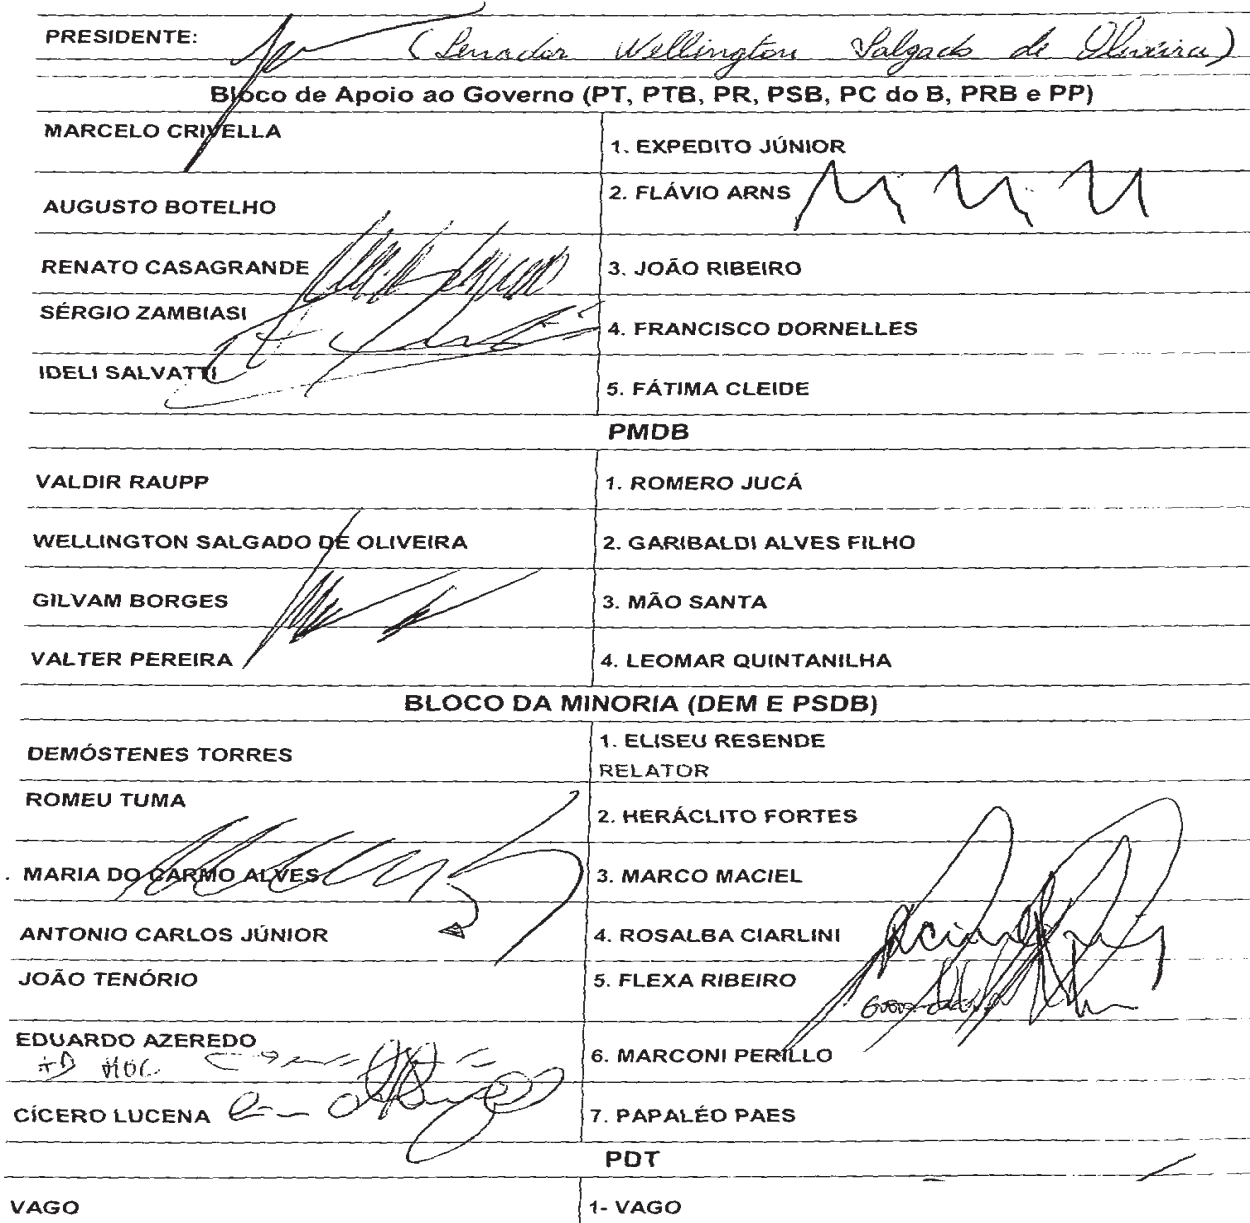 PRESIDENTE: (Senador Wellington Salgado de Oliveira)
Bloco de Apoio ao Governo (PT, PTB, PR, PSB, PC do B, PRB e PP)
MARCELO CRIVELLA
1. EXPEDITO JÚNIOR
AUGUSTO BOTELHO
2. FLÁVIO ARNS
RENATO CASAGRANDE
3. JOÃO RIBEIRO
SÉRGIO ZAMBIASI
4. FRANCISCO DORNELLES
IDELI SALVATTI
5. FÁTIMA CLEIDE
PMDB
VALDIR RAUPP
1. ROMERO JUCÁ
WELLINGTON SALGADO DE OLIVEIRA
2. GARIBALDI ALVES FILHO
GILVAM BORGES
3. MÃO SANTA
VALTER PEREIRA
4. LEOMAR QUINTANILHA
BLOCO DA MINORIA (DEM E PSDB)
DEMÓSTENES TORRES
1. ELISEU RESENDE
RELATOR
ROMEU TUMA
2. HERÁCLITO FORTES
MARIA DO CARMO ALVES
3. MARCO MACIEL
ANTONIO CARLOS JÚNIOR
4. ROSALBA CIARLINI
JOÃO TENÓRIO
5. FLEXA RIBEIRO
EDUARDO AZEREDO
6. MARCONI PERILLO
CÍCERO LUCENA
7. PAPALÉO PAES
PDT
VAGO
1- VAGO